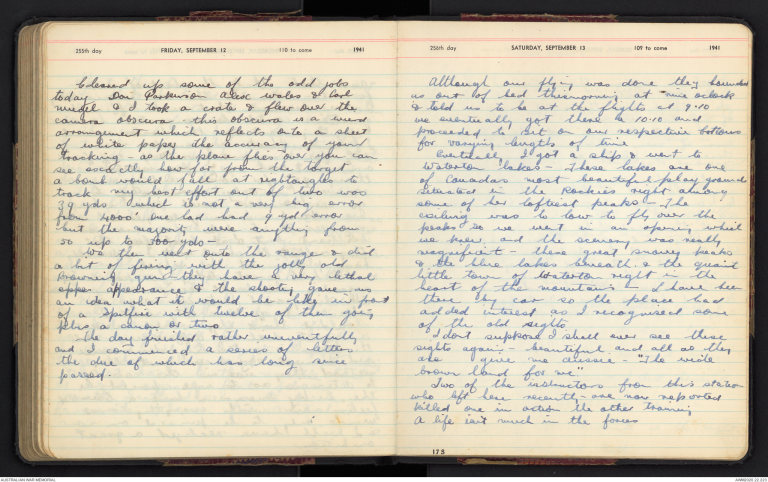 255th day FRIDAY, SEPTEMBER 12 110 to come 1941
Cleaned up some of the odd jobs
today. Don Parkinson Alex Wales & Carl
& I took a crate & flew over the
camera obscura - this obscura is a weird
arrangement which reflects onto a sheet
of white paper the accuracy of your
tracking - as the plane flies over you can
see exactly how far from the target
a bomb would fall at rightangles to
track - my best effort out of two was
39 yds which is not a very big error
from 4000' one lad had 9 yd error
but the majority were anything from
50 up to 300 yds -
We then went onto the range & did
a bit of firing with the jolly old
Browning gun - they have a very lethal
upper appearance & the shooting gave us
an idea what it would be like in front
of a Spitfire with twelve of them going
plus a canon or two
The day finished rather uneventfully
and I commenced a series of letters
the due of which has long since
passed.
256th day SATURDAY, SEPTEMBER 13 109 to come 1941
Although our flying was done they hounded
us out of bed this morning at nine oclock
& told us to be at the flights at 9.10
we eventually got there by 10.10 and
proceeded to sit on our respective bottoms
for varying lengths of time
Eventually I got a ship & went to
Waterton lakes - These lakes are one
of Canadas most beautiful play grounds
situated in the Rockies right among
some of her loftiest peaks - The
ceiling was to low to fly over the
peaks so we went in an opening which
we knew and the scenery was really
magnificent - these great snowy peaks
& the blue lakes beneath & the quaint
little town of Waterton right in the
heart of the mountains - I have been
there by car so the place had
added interest as I recognised some
of the old sights
I dont suppose I shall ever see these
sights again - beautiful and all as they
are I give me aussie - "The wide
brown land for me"
Two of the instructors from this station
who left here recently - are now reported
killed one in action the other training
A life isn't much in the forces
173
AUSTRALIAN WAR MEMORIAL